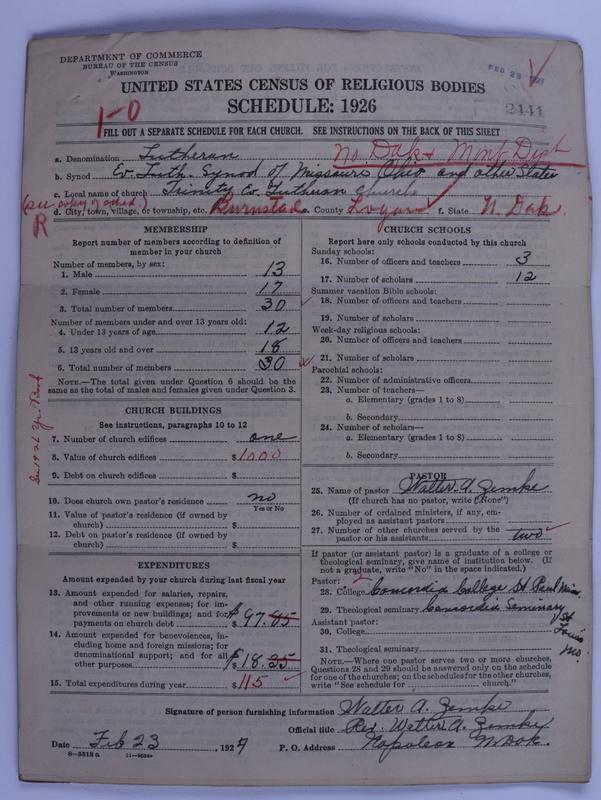 DEPARTMENT OF COMMERCE
BUREAU OF THE CENSUS
WASHINGTON
FEB 28 1927
UNITED STATES CENSUS OF RELIGIOUS BODIES
SCHEDULE: 1926
2441
1-0
FILL OUT A SEPARATE SCHEDULE FOR EACH CHURCH. SEE INSTRUCTIONS ON THE BACK OF THIS SHEET
No. Dak & Mont. Dist
a. Denomination Lutheran
b. Synod Ev. Luth. Synod of Missouri Ohio and other States
c. Local name of church Trinity Ev. Lutheran Church
(see copy of sched.)
R
d. City, town, village, or township, etc. Burnstad e. County Logan f. State N. Dak.
MEMBERSHIP
Report number of members according to definition of
member in your church
Number of members, by sex:
1. Male 13
2. Female 17
3. Total number of members 30
Number of members under and over 13 years old:
4. Under 13 years of age 12
5. 13 years old and over 18
6. Total number of members 30
NOTE.—The total given under Question 6 should be the
same as the total of males and females given under Question 3.
CHURCH BUILDINGS
See instructions, paragraphs 10 to 12
7. Number of church edifices one
8. Value of church edifices $1000
9. Debt on church edifices $
10. Does church own pastor's residence no
Yes or No
11. Value of pastor's residence (if owned by
church) $
12. Debt on pastor's residence (if owned by
church) $
EXPENDITURES
Amount expended by your church during last fiscal year
13. Amount expended for salaries, repairs,
and other running expenses; for im-
provements or new buildings; and for
payments on church debt $97.65
14. Amount expended for benevolences, in-
cluding home and foreign missions; for
denominational support; and for all
other purposes $18.35
15. Total expenditures during year $115
CHURCH SCHOOLS
Report here only schools conducted by this church
Sunday schools:
16. Number of officers and teachers 3
17. Number of scholars 12
Summer vacation Bible schools:
18. Number of officers and teachers
19. Number of scholars
Week-day religious schools:
20. Number of officers and teachers
21. Number of scholars
Parochial schools:
22. Number of administrative officers
23. Number of teachers—
a. Elementary (grades 1 to 8)
b. Secondary
24. Number of scholars—
a. Elementary (grades 1 to 8)
b. Secondary
PASTOR
25. Name of pastor Walter. A. Zemke
(If church has no pastor, write "None")
26. Number of ordained ministers, if any, em-
ployed as assistant pastors
27. Number of other churches served by the
pastor or his assistants two
If pastor (or assistant pastor) is a graduate of a college or
theological seminary, give name of institution below. (If
not a graduate, write "No" in the space indicated.)
Pastor: 2
28. College Concordia College St Paul Minn.
29. Theological seminary Concordia Seminary St Louis Mo.
Assistant pastor:
30. College
31. Theological seminary
NOTE.—Where one pastor serves two or more churches,
Questions 28 and 29 should be answered only on the schedule
for one of the churches; on the schedules for the other churches,
write "See schedule for church."
Signature of person furnishing information Walter A. Zemke
Official title Rev. Walter A. Zemke
Date Feb 23, 1927 P. O. Address Napoleon N. Dak.
8-5518 a